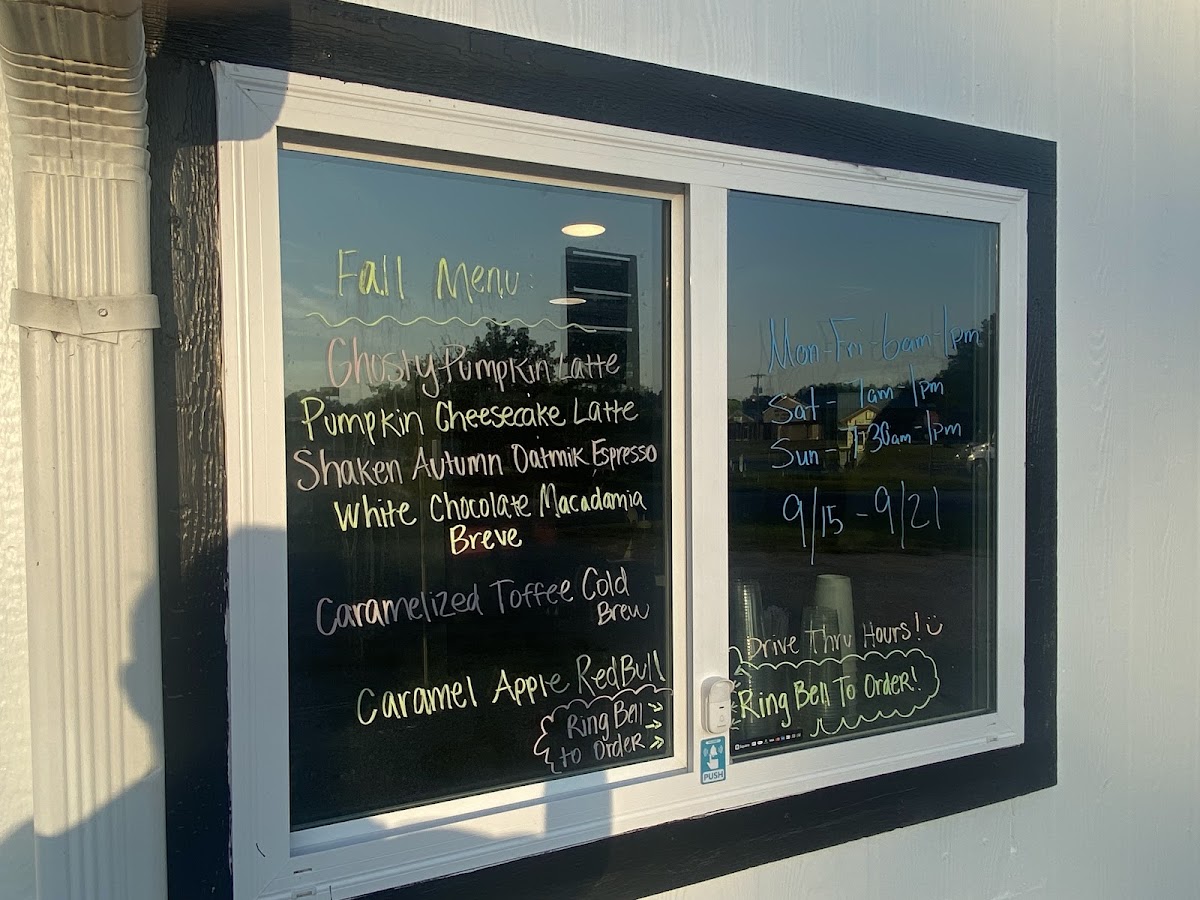 Fall Menu:
Ghosty Pumpkin Latte
Pumpkin Cheesecake Latte
Shaken Autumn Oatmik Espresso
White Chocolate Macadamia
Breve
Caramelized Toffee Cold
Brew
Caramel Apple RedBull
Ring Bell
to Order
Mon-Fri-6am-1pm
Sat - 7am-1pm
Sun - 7:30am-1pm
9/15 - 9/21
Drive Thru Hours!
Ring Bell To Order!
PUSH